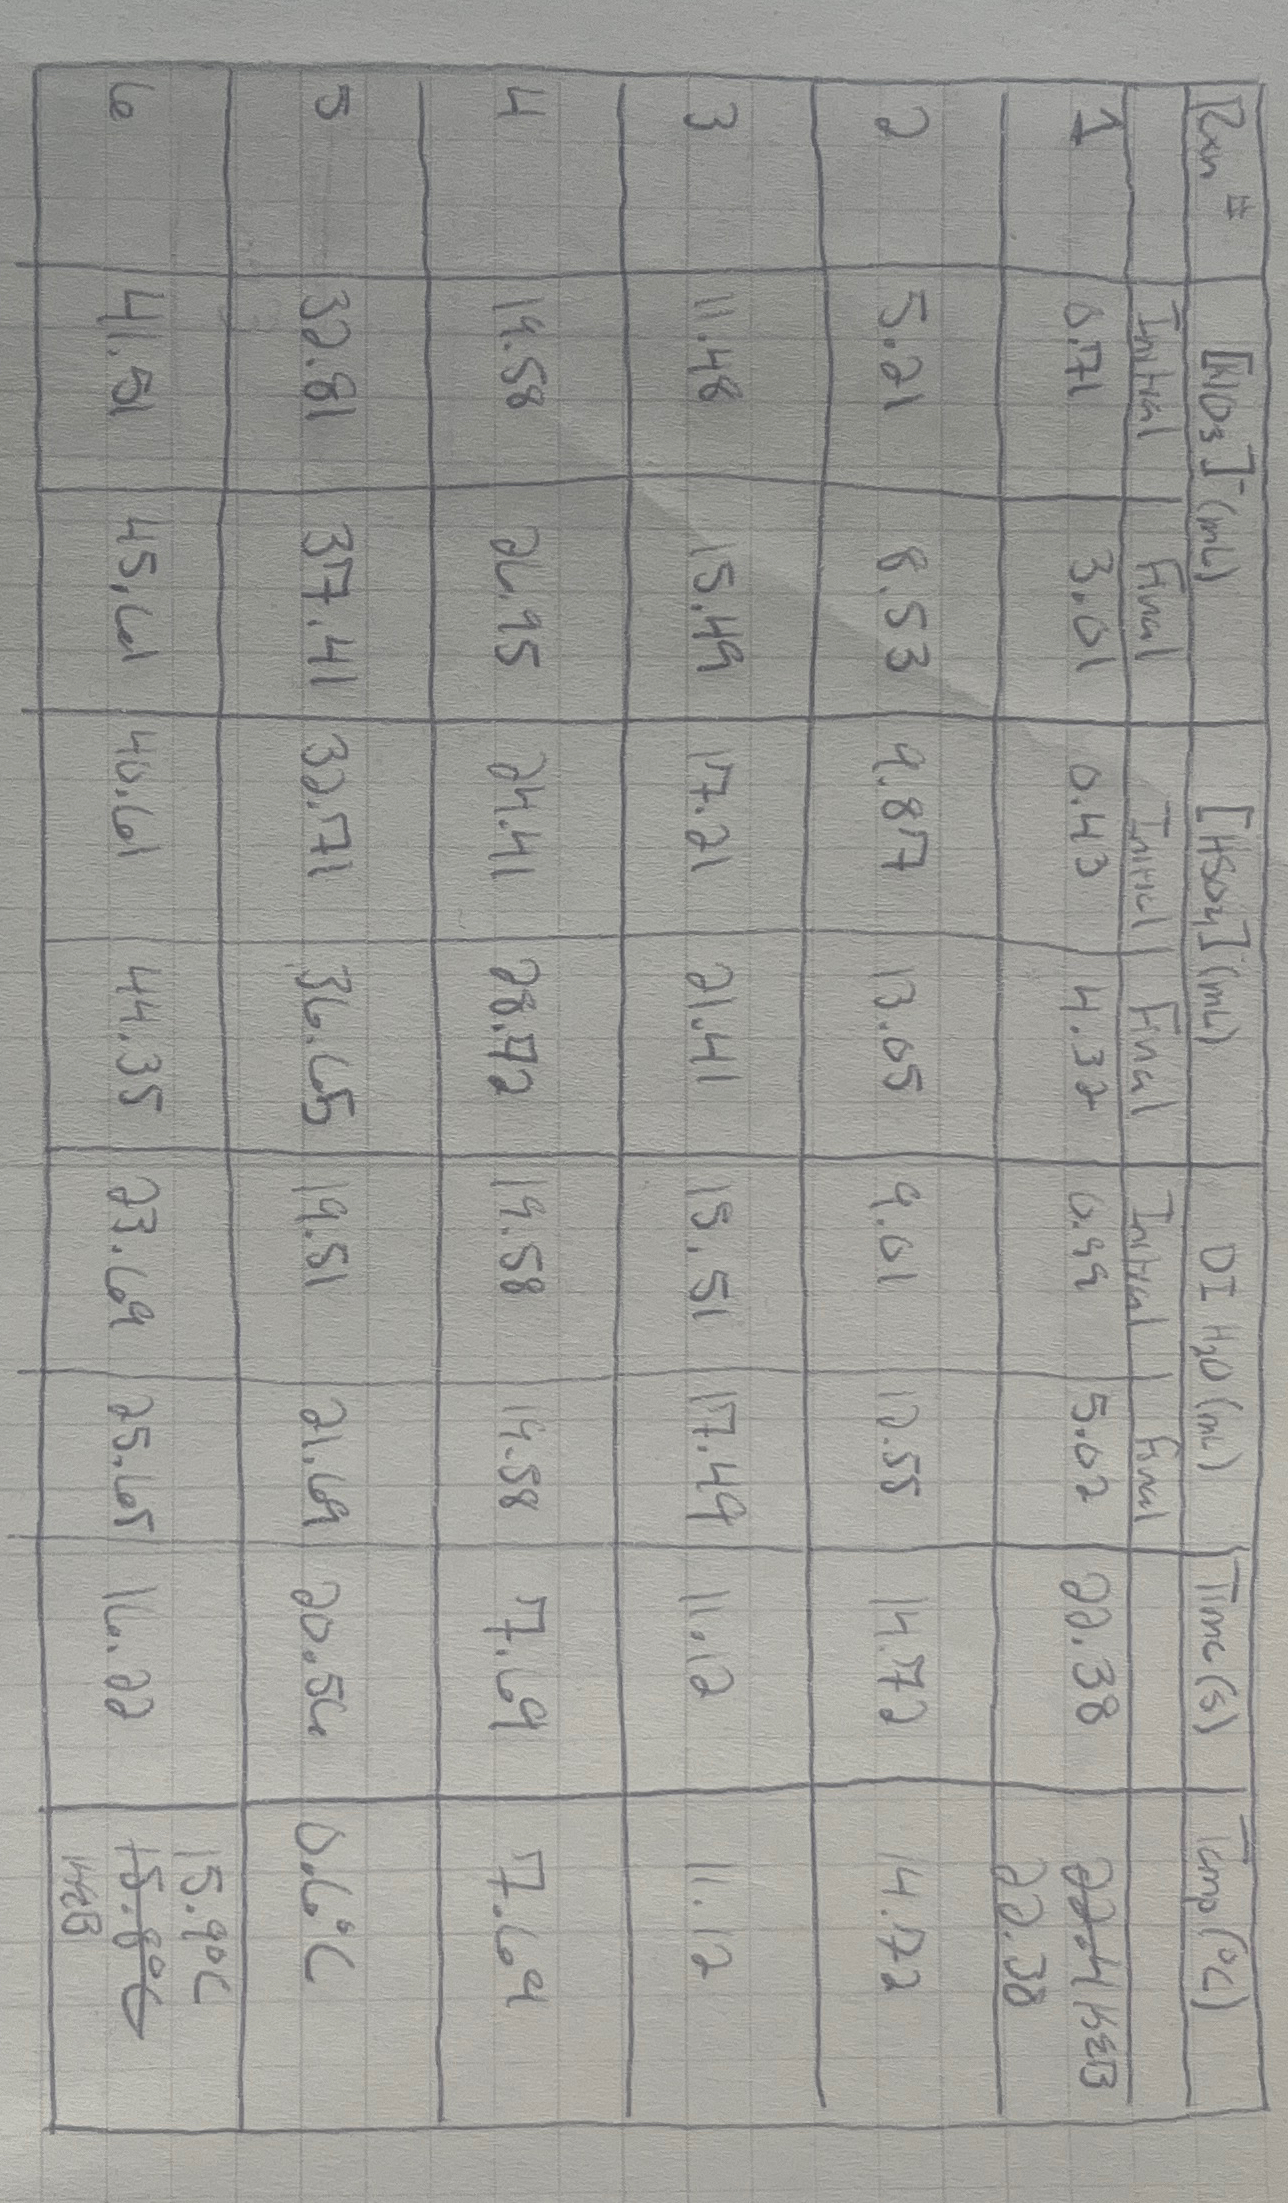 Rxn # [IO3]⁻(mL) [HSO4]⁻(mL) DI H2O (mL) Time (s) Temp (°C)
Initial Final Initial Final Initial Final
1 0.71 3.01 0.43 4.32 0.99 5.02 22.38 22.4 KEB 22.38
2 5.21 8.53 9.87 13.05 9.01 12.55 14.72 14.72
3 11.48 15.49 17.21 21.41 15.51 17.49 11.12 11.12
4 19.58 26.95 24.41 28.72 19.58 19.58 7.69 7.69
5 32.81 37.41 32.71 36.65 19.51 21.69 20.56 0.6°C
6 41.51 45.61 40.61 44.35 23.69 25.65 16.22 15.9°C
15.8°C
KEB